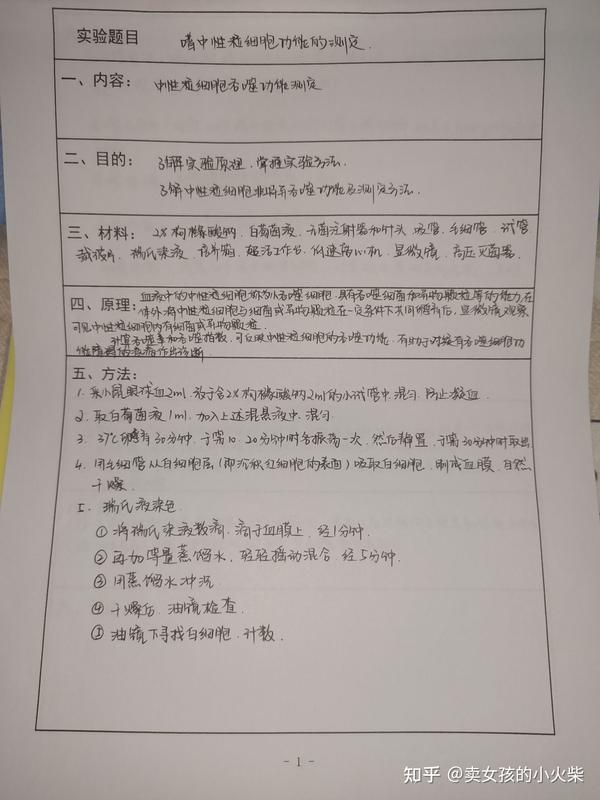 实验题目
嗜中性粒细胞功能的测定.
一、内容:
中性粒细胞吞噬功能测定
二、目的:
了解实验原理,掌握实验方法.
了解中性粒细胞非特异吞噬功能及测定方法.
三、材料:
2%枸橼酸钠.白葡菌液.无菌注射器和针头.吸管.毛细管.试管
载玻片.瑞氏染液.培养箱.超净工作台.低速离心机.显微镜.高压灭菌器.
四、原理:
血液中的中性粒细胞称为小吞噬细胞,具有吞噬细菌和异物颗粒等的能力,在
体外将中性粒细胞与细菌或异物颗粒在一定条件下共同孵育后,显微镜观察,
可见中性粒细胞内有细菌或异物颗粒.
计算吞噬率和吞噬指数,可反映中性粒细胞的吞噬功能.有助于对疑有吞噬细胞功
能障碍的疾病作出诊断.
五、方法:
1. 采小鼠眼球血2ml.放于含2%枸橼酸钠2ml的小试管中.混匀.防止凝血.
2. 取白葡菌液1ml.加入上述混悬液中.混匀.
3. 37℃孵育30分钟.于第10.20分钟时各振荡一次.然后静置.于第30分钟时取出
4. 用毛细管从白细胞层(即沉积红细胞的表面)吸取白细胞.制成血膜.自然
干燥.
5. 瑞氏液染色
① 将瑞氏染液数滴.滴于血膜上.经1分钟.
② 再加等量蒸馏水.轻轻摇动混合.经5分钟.
③ 用蒸馏水冲洗.
④ 干燥后.油镜检查.
⑤ 油镜下寻找白细胞.计数.
- 1 -
知乎 @卖女孩的小火柴